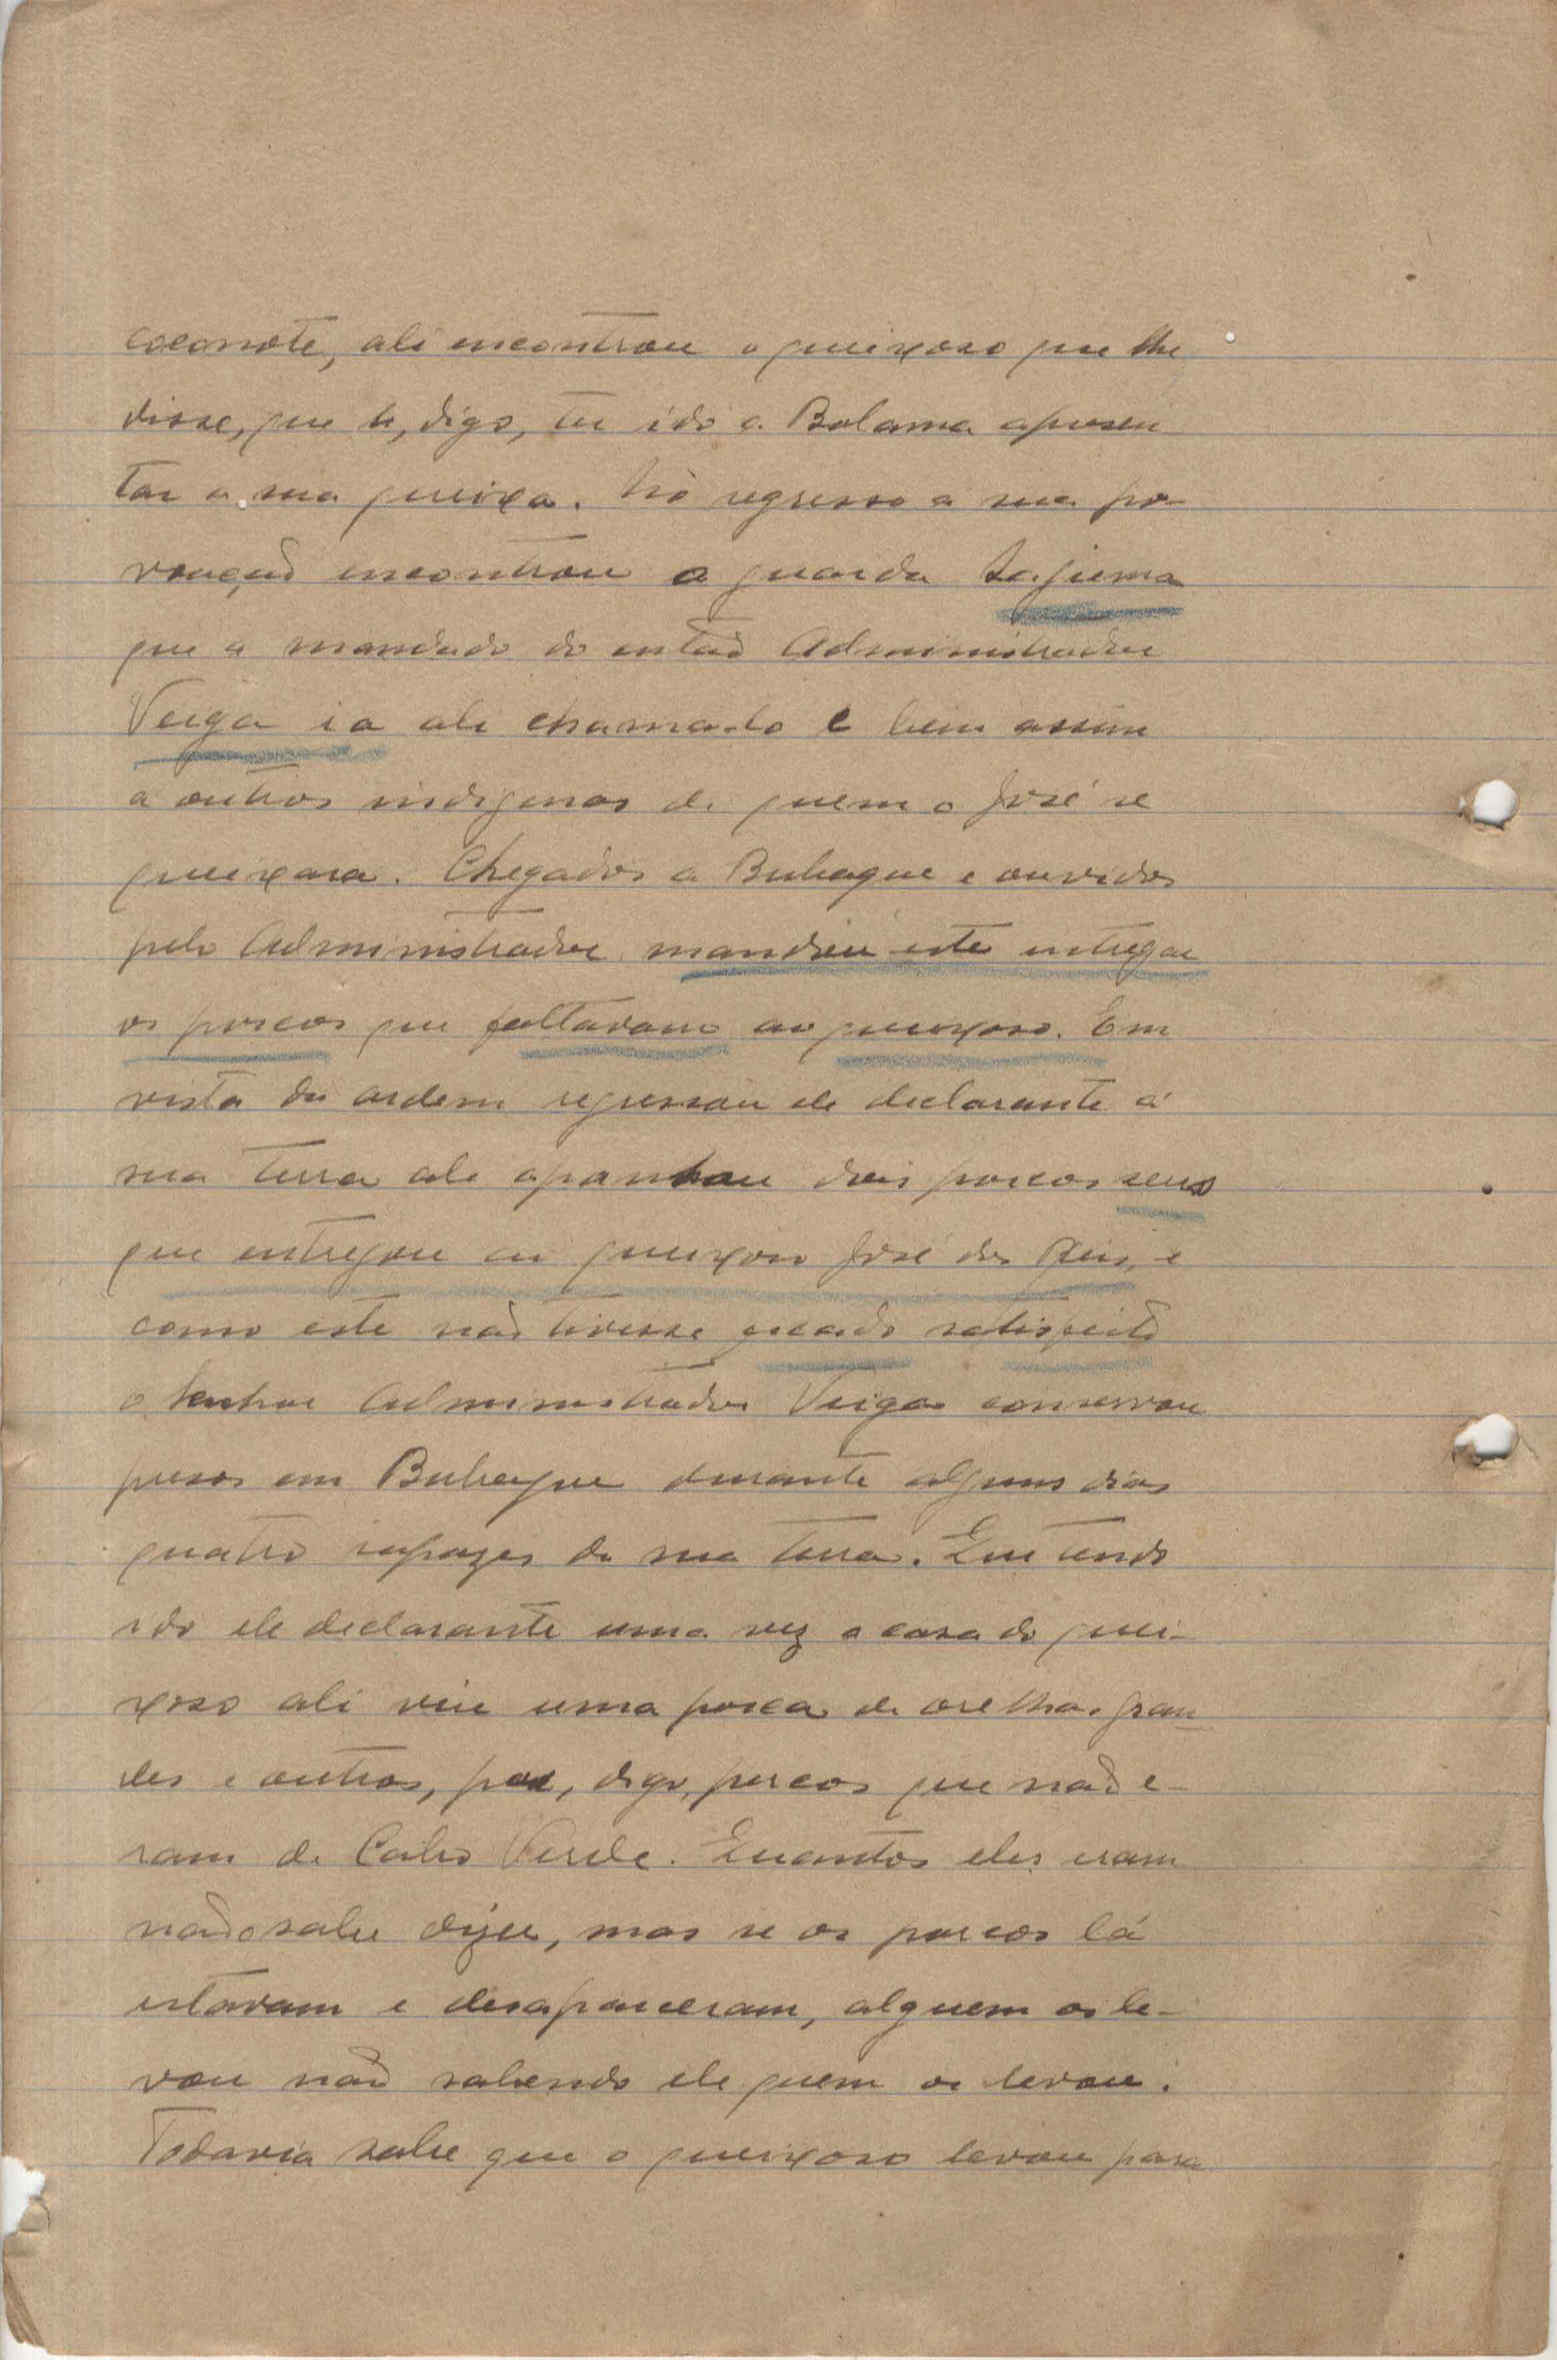 coconote, ali encontrou o queixoso que lhe
disse, que te, digo, ter ido a Bolama apresen
tar a sua queixa. No regresso a sua po-
voação encontrou o guarda
que a mandado do então Administrador
Veiga ia ali chama-lo e bem assim
a outros indigenas de quem o José se
queixara. Chegados a Bubaque e ouvidos
pelo Administrador mandou este entregar
os porcos que faltavam ao queixoso. Em
vista da ordem regressou ele declarante á
sua terra ali apanhou dois porcos seus
que entregou ao queixoso José dos Reis, e
como este não tivesse ficado satisfeito
o Senhor Administrador Veiga conservou
presos em Bubaque durante alguns dias
quatro rapazes da sua terra. Que tendo
ido ele declarante uma vez a casa do quei-
xoso ali viu uma porca de orelhas gran
des e outros, por, digo, porcos que não e-
ram de Cabo Verde. Quantos eles eram
não sabe dizer, mas se os porcos lá
estavam e desapareceram, alguem os le-
vou não sabendo ele quem os levou.
Todavia sabe que o queixoso levou para